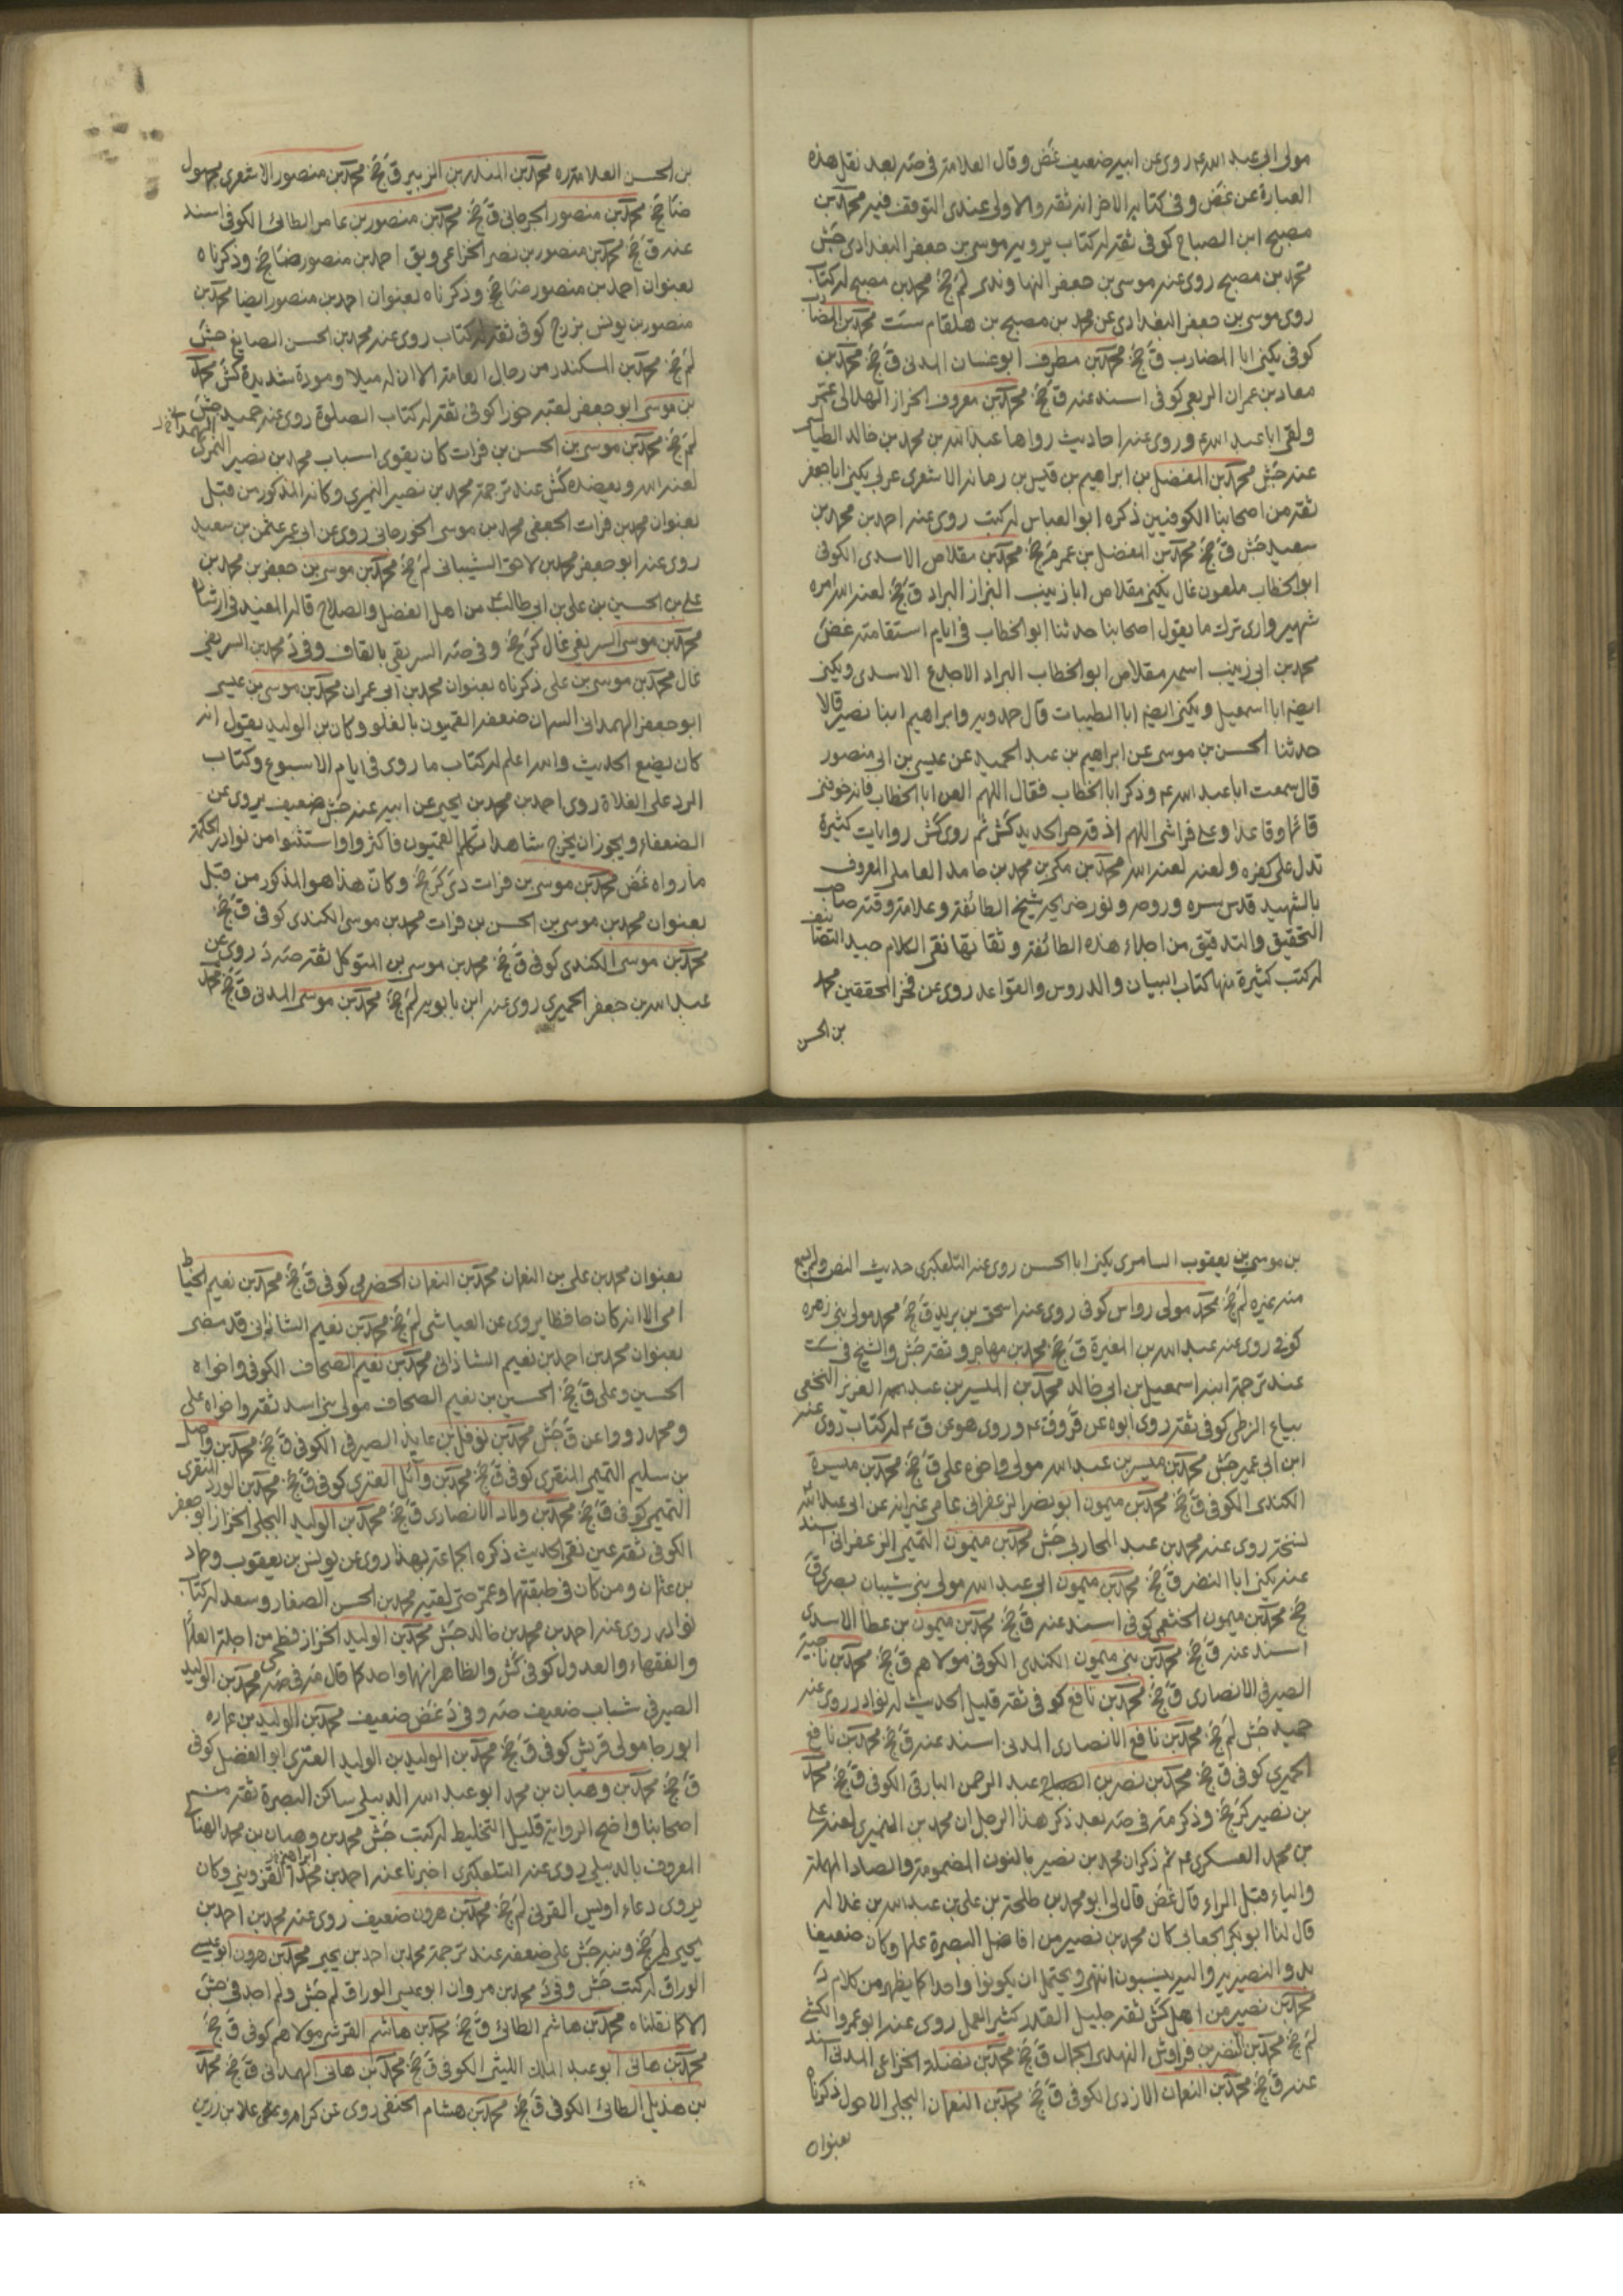 مولى ابى عبد الله ع روى عن ابيه ضعيف غض وقال العلامة في صه بعد نقل هذه
العبارة عن غض وفى كتابه الاخر انه ثقة والاولى عندى التوقف فيه محمد بن
مصبح ابن الصباح كوفى ثقة له كتاب يرويه موسى بن جعفر البغدادى جش
محمد بن مصبح روى عنه موسى بن جعفر النهاوندى لم جخ محمد بن مصبح له كتاب
روى موسى بن جعفر البغدادى عن محمد بن مصبح بن هلقام ست محمد بن المضا
كوفى يكنى ابا المضارب ق جخ محمد بن مطرف ابو غسان المدنى ق جخ محمد بن
معاد بن عمران الربعى كوفى اسند عنه ق جخ محمد بن معروف الخزاز الهلالى عمر
ولقى ابا عبد الله ع وروى عنه احاديث رواها عبد الله بن محمد بن خالد الطيالسى
عنه جش محمد بن المفضل بن ابراهيم بن قيس بن رمانه الاشعرى عربى يكنى ابا جعفر
ثقة من اصحابنا الكوفيين ذكره ابو العباس له كتب روى عنه احمد بن محمد بن
سعيد جش ق جخ محمد بن المفضل بن عمر م جخ محمد بن مقلاص الاسدى الكوفى
ابو الخطاب ملعون غال يكنى مقلاص ابا زينب البزاز البراد ق جخ لعنه الله امره
شهير وارى ترك ما يقول اصحابنا حدثنا ابو الخطاب فى ايام استقامته غض
محمد بن ابى زينب اسمه مقلاص ابو الخطاب البراد الاجدع الاسدى ويكنى
ايضا ابا اسمعيل ويكنى ايضا ابا الطيبات قال حمدويه وابراهيم ابنا نصير قالا
حدثنا الحسن بن موسى عن ابراهيم بن عبد الحميد عن عيسى بن ابى منصور
قال سمعت ابا عبد الله ع وذكر ابا الخطاب فقال اللهم العن ابا الخطاب فانه خوفنى
قائما وقاعدا وعلى فراشى اللهم اذقه حر الحديد كش ثم روى كش روايات كثيرة
تدل على كفره ولعنه لعنه الله محمد بن مكى بن محمد بن حامد العاملى المعروف
بالشهيد قدس سره وروحه ونور ضريحه شيخ الطائفة وعلامة وقته صاحب
التحقيق والتدقيق من اجلاء هذه الطائفة وثقاتها نقى الكلام جيد التصانيف
له كتب كثيرة منها كتاب البيان والدروس والقواعد روى عن فخر المحققين محمد
بن الحسن
بن الحسن العلامة ره محمد بن المنذر بن الزبير ق جخ محمد بن منصور الاشعرى مجهول
ضا جخ محمد بن منصور الجرجانى ق جخ محمد بن منصور بن عامر الطائى الكوفى اسند
عنه ق جخ محمد بن منصور بن نصر الخزاعى ويق احمد بن منصور ضا جخ وذكرناه
بعنوان احمد بن منصور ضا جخ وذكرناه بعنوان احمد بن منصور ايضا محمد بن
منصور بن يونس بزرج كوفى ثقة له كتاب روى عنه محمد بن الحسن الصايغ جش
لم جخ محمد بن المنكدر من رجال العامة الا ان له ميلا ومودة شديدة كش محمد
بن موسى ابو جعفر لقبه خورا كوفى ثقة له كتاب الصلوة روى عنه حميد جش
لم جخ محمد بن موسى بن الحسن بن فرات كان يقوى اسباب محمد بن نصير النميرى
لعنه الله ويعضده كش عند ترجمة محمد بن نصير النميرى وكانه المذكور من قبل
بعنوان محمد بن فرات الجعفى محمد بن موسى الخورجانى روى عن ابى عمر عثمن بن سعيد
روى عنه ابو جعفر محمد بن لاحق الشيبانى لم جخ محمد بن موسى بن جعفر بن محمد بن
على بن الحسين بن على بن ابى طالب ع من اهل الفضل والصلاح قاله المفيد فى ارشاده
محمد بن موسى السريعى غال كر جخ وفى صه السريقى بالقاف وفى د محمد بن السريغى
غال محمد بن موسى بن على ذكرناه بعنوان محمد بن ابى عمران محمد بن موسى بن عيسى
ابو جعفر الهمدانى السمان ضعفه القميون بالغلو وكان بن الوليد يقول انه
كان يضع الحديث والله اعلم له كتاب ما روى فى ايام الاسبوع وكتاب
الرد على الغلاة روى احمد بن محمد بن يحيى عن ابيه عنه جش ضعيف يروى عن
الضعفاء ويجوز ان يخرج شاهدا تكلم القميون فاكثروا واستثنوا من نوادر الحكمة
ما رواه غض محمد بن موسى بن فرات دى كر جخ وكان هذا هو المذكور من قبل
بعنوان محمد بن موسى بن الحسن بن فرات محمد بن موسى الكندى كوفى ق جخ
محمد بن موسى الكندى كوفى ق جخ محمد بن موسى بن المتوكل ثقة صه د روى عن
عبد الله بن جعفر الحميرى روى عنه ابن بابويه لم جخ محمد بن موسى المدنى ق جخ محمد
بن موسى بن يعقوب السامرى يكنى ابا الحسن روى عنه التلعكبرى حديث النص ولم يسمع
منه غيره لم جخ محمد مولى رواس كوفى روى عنه اسحق بن يزيد ق جخ محمد مولى بنى زهره
كوفى روى عنه عبد الله بن المغيرة ق جخ محمد بن مهاجر وثقة جش والشيخ فى ست
عند ترجمة ابنه اسمعيل بن ابى خالد محمد بن الميسر بن عبد العزيز النخعى
بياع الزطى كوفى ثقة روى ابوه عن قر وق ع وروى هو عن ق ع له كتاب روى عنه
ابن ابى عمير جش محمد بن ميسر بن عبد الله مولى واخوه على ق جخ محمد بن ميسرة
الكندى الكوفى ق جخ محمد بن ميمون ابو نصر الزعفرانى عامى غير انه عن ابى عبد الله
نسخة روى عنه محمد بن عبيد المحاربى جش محمد بن ميمون التميمى الزعفرانى اسند
عنه يكنى ابا النضر ق جخ محمد بن ميمون ابى عبد الله مولى بنى شيبان بصرى ق
جخ محمد بن ميمون الخثعمى كوفى اسند عنه ق جخ محمد بن ميمون بن عطا الاسدى
اسند عنه ق جخ محمد بن ميمون الكندى الكوفى مولاهم ق جخ محمد بن ناجية
الصيرفى الانصارى ق جخ محمد بن نافع كوفى ثقة قليل الحديث له نوادر روى عنه
حميد جش لم جخ محمد بن نافع الانصارى المدنى اسند عنه ق جخ محمد بن نافع
الحميرى كوفى ق جخ محمد بن نصر بن عبد الرحمن البارقى الكوفى ق جخ محمد
بن نصير كر جخ وذكر مة فى صه بعد ذكر هذا الرجل ان محمد بن النميرى لعنه على
بن محمد العسكرى ع ثم ذكر ان محمد بن نصير بالنون المضمومة والصاد المهملة
والياء قبل الراء قال غض قال لى ابو محمد بن طلحة بن على بن عبد الله بن غلاله
قال لنا ابو بكر الجعابى كان محمد بن نصير من افاضل البصرة علما وكان ضعيفا
بدو النصيرية واليه ينسبون انتهى ويحتمل ان يكونوا واحدا كما يظهر من كلام د
محمد بن نصير من اهل كش ثقة جليل القدر كثير العلم روى عنه ابو عمرو الكشى
لم جخ محمد بن النضر بن قرواش النهدى الجمال ق جخ محمد بن نضلة الخزاعى المدنى اسند
عنه ق جخ محمد بن النعمان الازدى الكوفى ق جخ محمد بن النعمان البجلى الاحول ذكرناه
بعنوان
بعنوان محمد بن على بن النعمان محمد بن النعمان الحضرمى كوفى ق جخ محمد بن نعيم الخياط
امى الا انه كان حافظا يروى عن العياشى لم جخ محمد بن نعيم الشاذانى قد مضى
بعنوان محمد بن احمد بن نعيم الشاذانى محمد بن نعيم الصحاف الكوفى واخواه
الحسين وعلى ق جخ الحسين بن نعيم الصحاف مولى بنى اسد ثقة واخواه على
ومحمد رووا عن ق جش محمد بن نوفل بن عايذ الصيرفى الكوفى ق جخ محمد بن واصل
بن سليم التميمى المنقرى كوفى ق جخ محمد بن وائل العنزى كوفى ق جخ محمد بن الورد المنقرى
التميمى كوفى ق جخ محمد بن ولاد الانصارى ق جخ محمد بن الوليد البجلى الخزاز ابو جعفر
الكوفى ثقة عين نقى الحديث ذكره الجماعة بهذا روى عن يونس بن يعقوب وحماد
بن عثمان ومن كان فى طبقتهما وعمر حتى لقيه محمد بن الحسن الصفار وسعد له كتاب
نوادر روى عنه احمد بن محمد بن خالد جش محمد بن الوليد الخزاز فطحى من اجلة العلماء
والفقهاء والعدول كوفى كش والظاهر انهما واحد كما قال مة فى صه محمد بن الوليد
الصيرفى شباب ضعيف صه وفى د غض ضعيف محمد بن الوليد بن عماره
ابو رجا مولى قريش كوفى ق جخ محمد بن الوليد بن الوليد العنزى ابو الفضل كوفى
ق جخ محمد بن وهبان بن محمد ابو عبد الله الدبيلى ساكن البصرة ثقة من
اصحابنا واضح الرواية قليل التخليط له كتب جش محمد بن وهبان بن محمد الهنائى
المعروف بالدبيلى روى عنه التلعكبرى اخبرنا عنه احمد بن ابراهيم القزوينى وكان
يروى دعاء اويس القرنى لم جخ محمد بن هرون ضعيف روى عنه محمد بن احمد بن
يحيى لم جخ ونبه جش على ضعفه عند ترجمة محمد بن احمد بن يحيى محمد بن هرون ابو عيسى
الوراق له كتب جش وفى د محمد بن مروان ابو عيسى الوراق لم جش ولم اجد فى جش
الا كما نقلناه محمد بن هاشم الطائى ق جخ محمد بن هاشم القرشى مولاهم كوفى ق جخ
محمد بن هانى ابو عبد الملك الليثى الكوفى ق جخ محمد بن هانى الهمدانى ق جخ محمد
بن هذيل الطائى الكوفى ق جخ محمد بن هشام الخثعمى روى عن كرام وعلى علا بن رزين